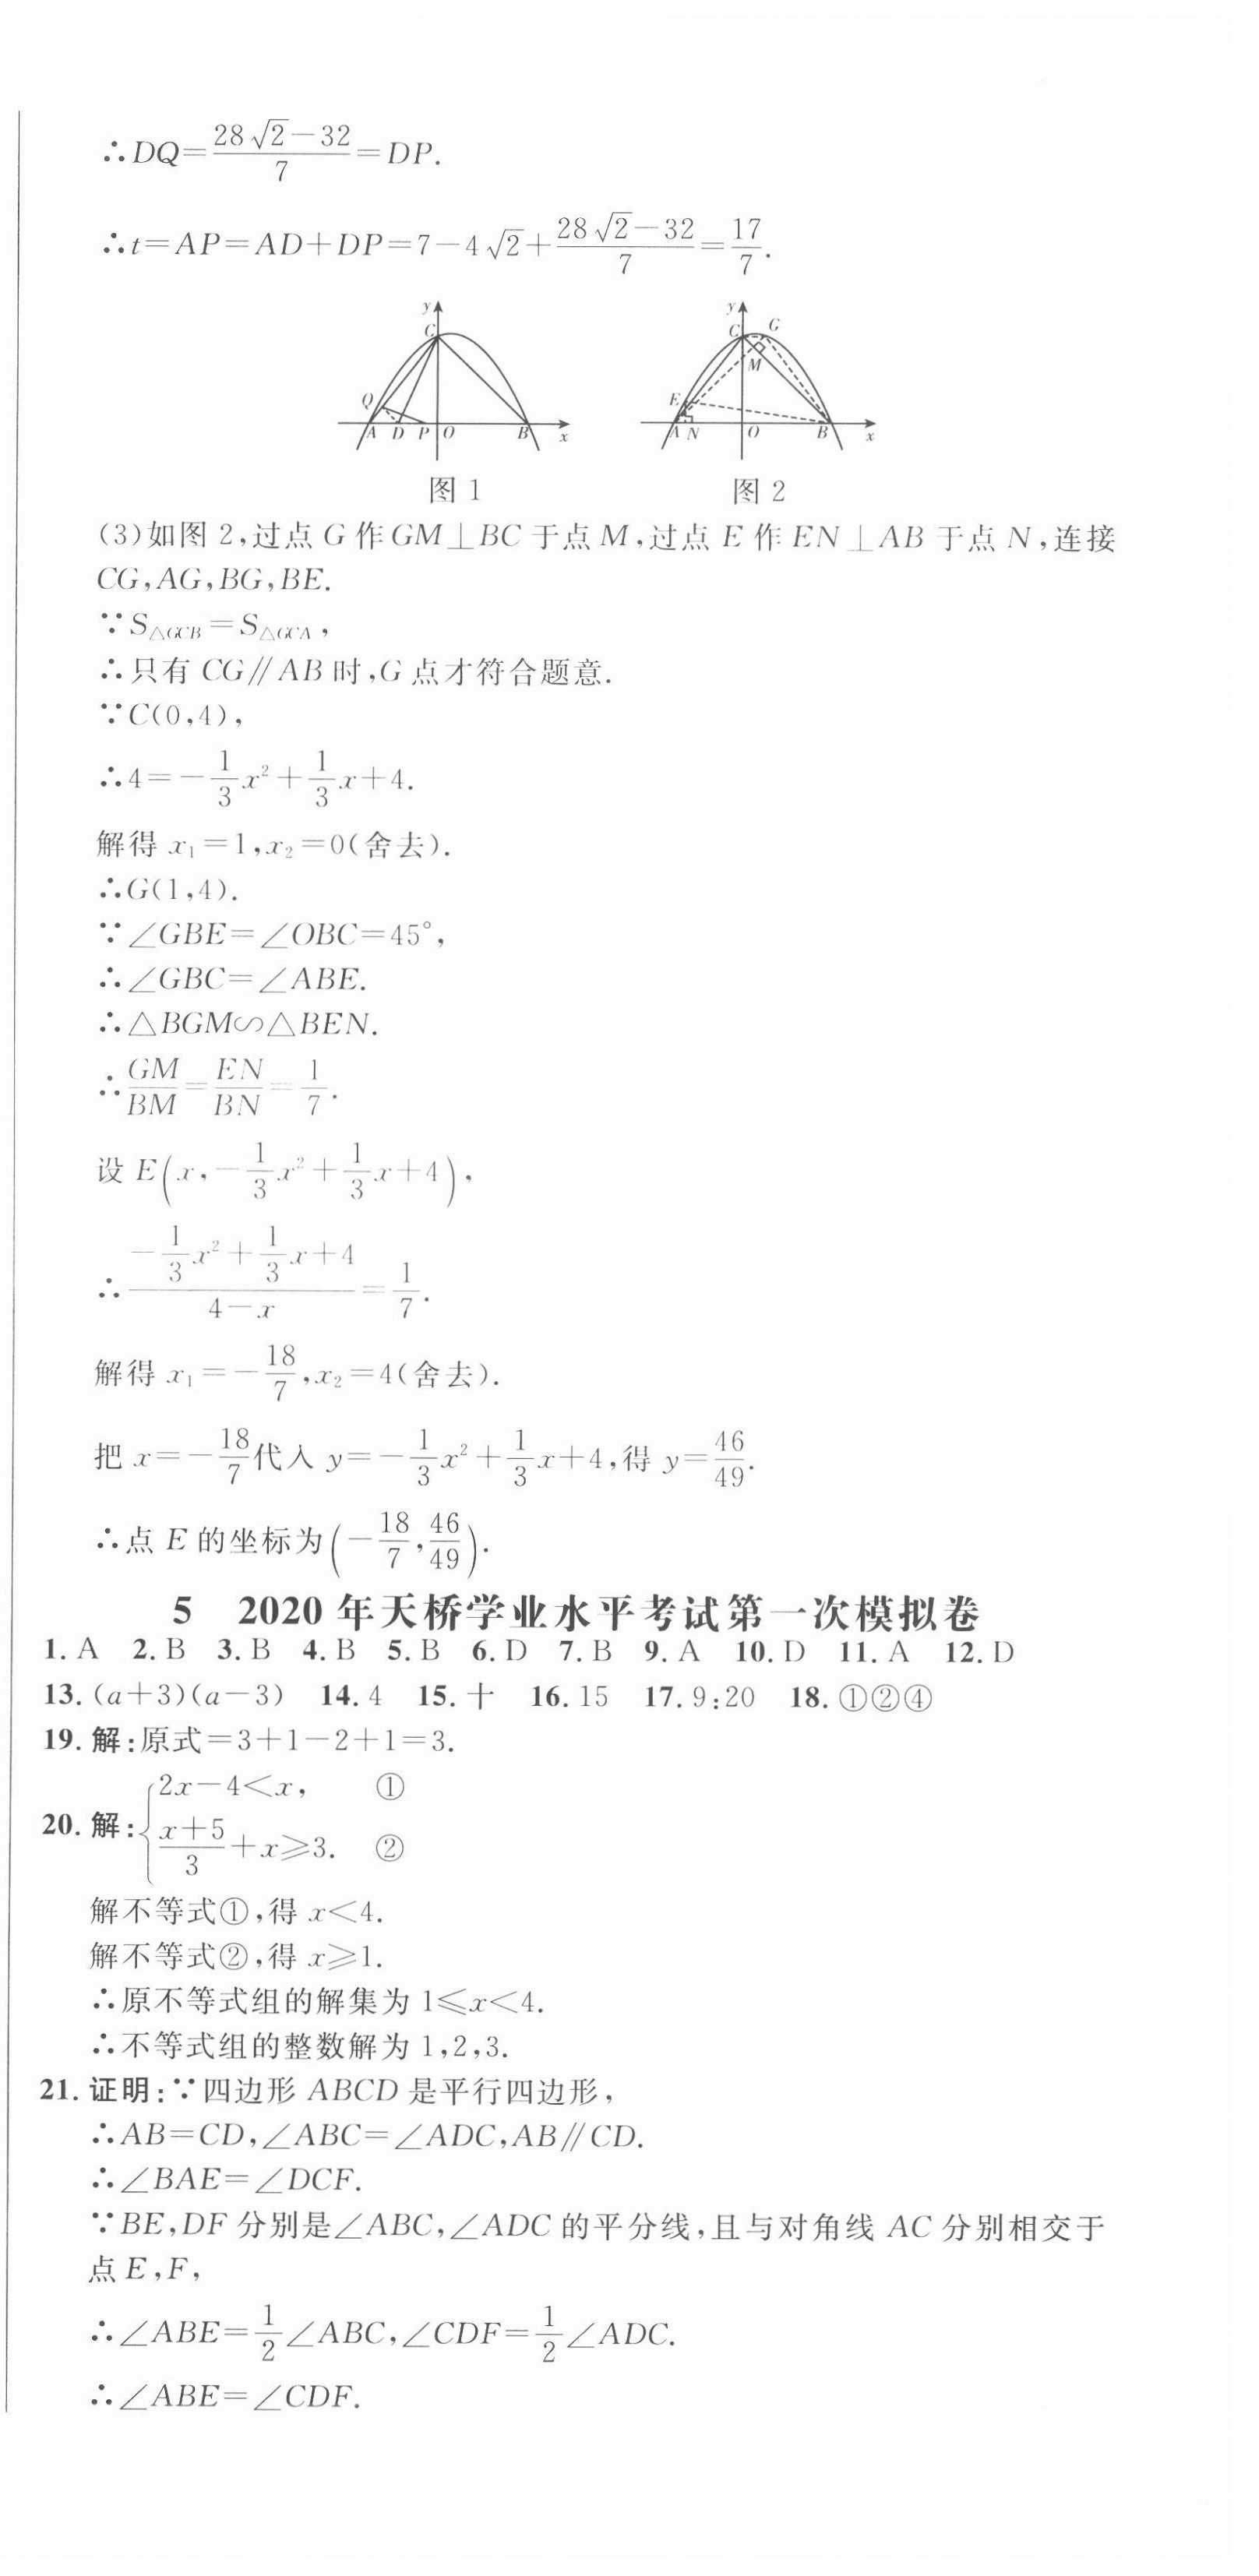 ∴DQ=(28√2-32)/7=DP.
∴t=AP=AD+DP=7-4√2+(28√2-32)/7=17/7.
y C Q A D P O B x
y C G M E A N O B x
图 1 图 2
(3)如图 2,过点 G 作 GM⊥BC 于点 M,过点 E 作 EN⊥AB 于点 N,连接
CG,AG,BG,BE.
∵S△GCB=S△GCA,
∴只有 CG∥AB 时,G 点才符合题意.
∵C(0,4),
∴4=-1/3x²+1/3x+4.
解得 x₁=1,x₂=0(舍去).
∴G(1,4).
∵∠GBE=∠OBC=45°,
∴∠GBC=∠ABE.
∴△BGM∽△BEN.
∴GM/BM=EN/BN=1/7.
设 E(x,-1/3x²+1/3x+4),
∴(-1/3x²+1/3x+4)/(4-x)=1/7.
解得 x₁=-18/7,x₂=4(舍去).
把 x=-18/7代入 y=-1/3x²+1/3x+4,得 y=46/49.
∴点 E 的坐标为(-18/7,46/49).
5 2020 年天桥学业水平考试第一次模拟卷
1. A 2. B 3. B 4. B 5. B 6. D 7. B 9. A 10. D 11. A 12. D
13. (a+3)(a-3) 14. 4 15. 十 16. 15 17. 9:20 18. ①②④
19. 解:原式=3+1-2+1=3.
20. 解:{2x-4<x, ①
(x+5)/3+x≥3. ②
解不等式①,得 x<4.
解不等式②,得 x≥1.
∴原不等式组的解集为 1≤x<4.
∴不等式组的整数解为 1,2,3.
21. 证明:∵四边形 ABCD 是平行四边形,
∴AB=CD,∠ABC=∠ADC,AB∥CD.
∴∠BAE=∠DCF.
∵BE,DF 分别是∠ABC,∠ADC 的平分线,且与对角线 AC 分别相交于
点 E,F,
∴∠ABE=1/2∠ABC,∠CDF=1/2∠ADC.
∴∠ABE=∠CDF.